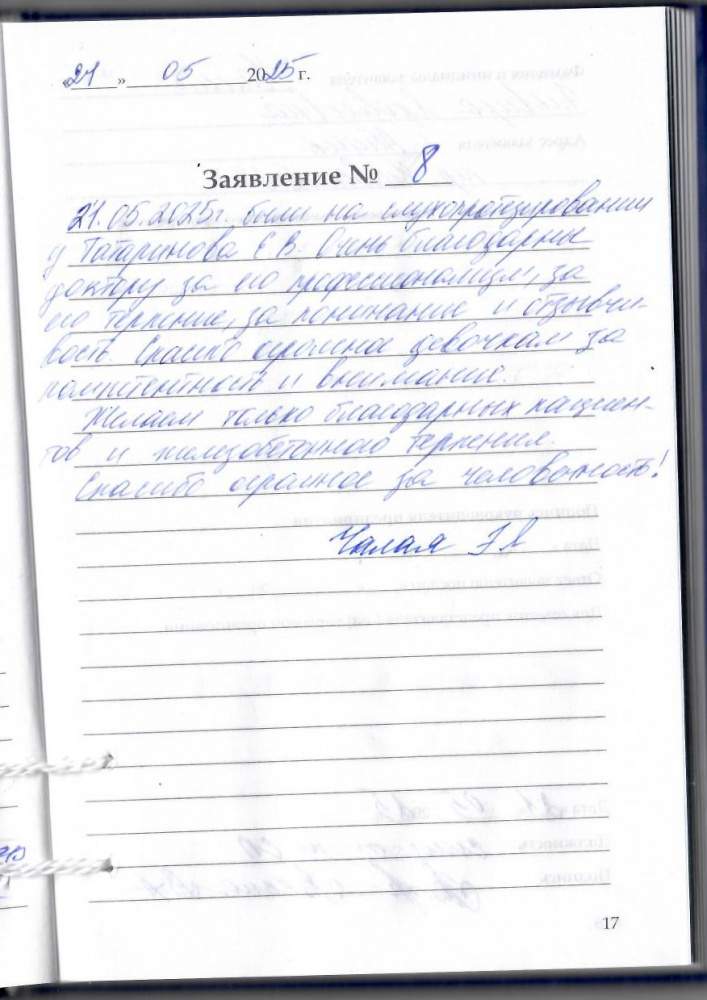 «21» 05 2025 г.
Заявление № 8
21.05.2025г. были на слухопротезировании
у Татаринова Е В. Очень благодарны
доктору за его профессионализм, за
его терпение, за понимание и отзывчи-
вость. Спасибо огромное девочкам за
компитентность и внимание.
Желаем только благодарных пациен-
тов и железобетонного терпения.
Спасибо огромное за человечность!
Чалая
17